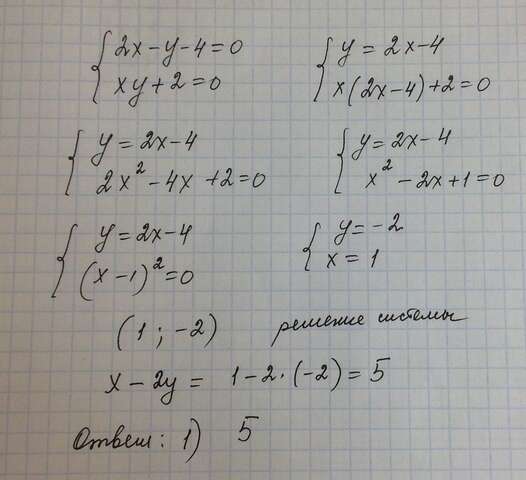 { 2x - y - 4 = 0
xy + 2 = 0
{ y = 2x - 4
x(2x - 4) + 2 = 0
{ y = 2x - 4
2x² - 4x + 2 = 0
{ y = 2x - 4
x² - 2x + 1 = 0
{ y = 2x - 4
(x - 1)² = 0
{ y = -2
x = 1
(1 ; -2) решение системы
x - 2y = 1 - 2 · (-2) = 5
Ответ: 1) 5